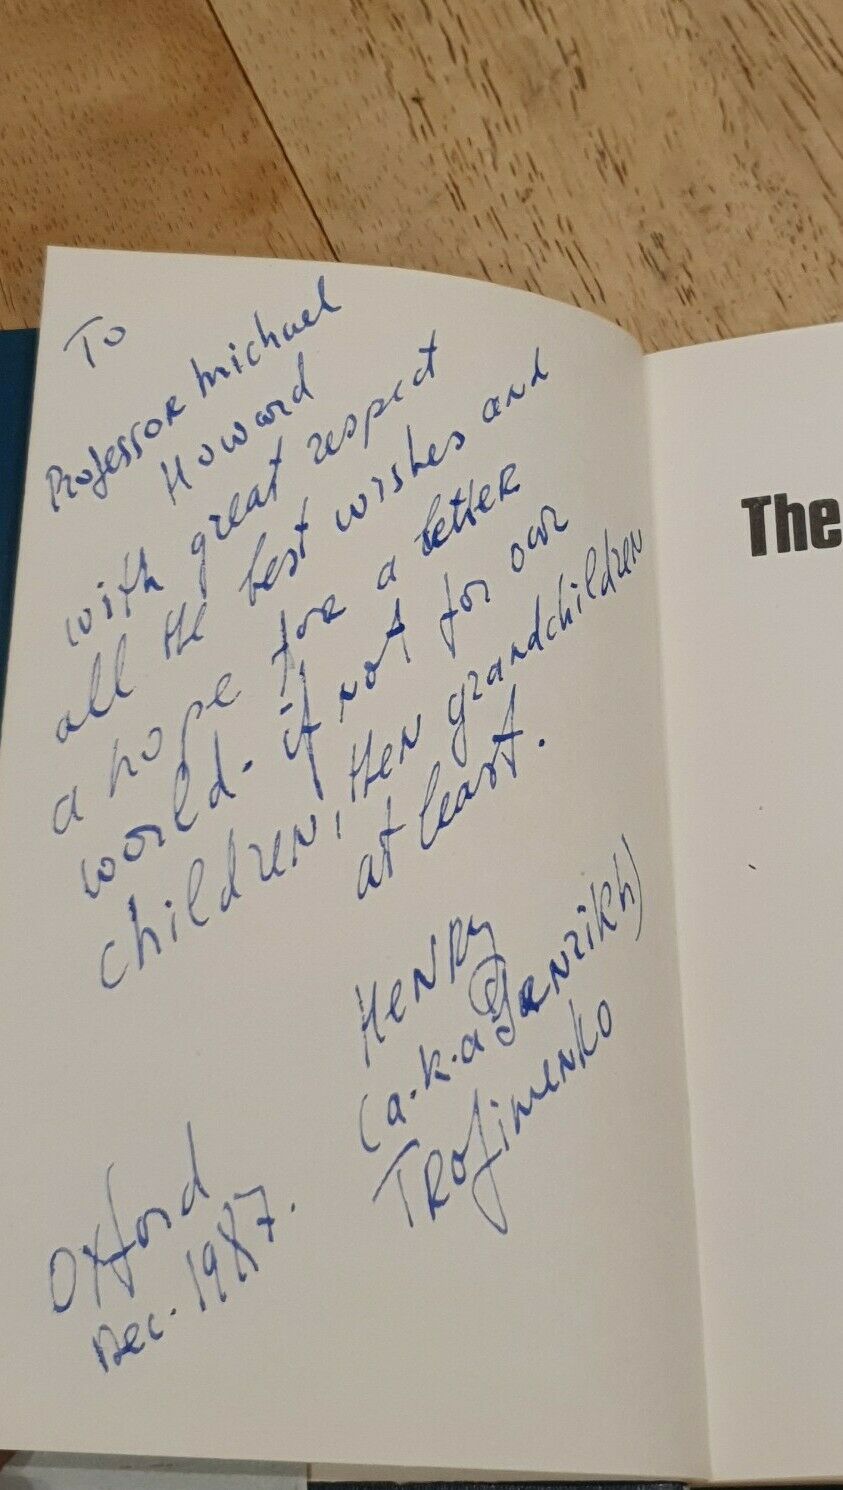 To
Professor Michael
Howard
with great respect
all the best wishes and
a hope for a better
world - if not for our
children, then grandchildren
at least.
Henry
(a.k.a Ganrikh)
Trofimenko
Oxford
Dec. 1987.
The